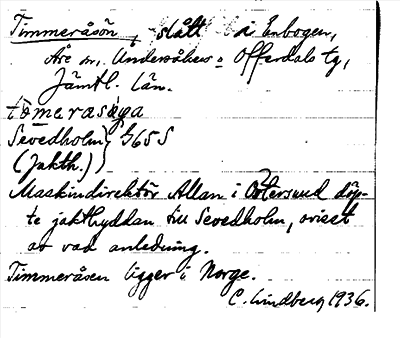 Timmeråsön, slått i Enbogen,
Åre sn, Undersåkers o Offerdals tg,
Jämtl. län.
tɩmeråsøɳa
Sevedholm } G65S
(Jakth.)
Maskindirektör Allan i Östersund döp-
te jakthyddan till Sevedholm, ovisst
av vad anledning.
Timmeråsen ligger i Norge.
C. Lindberg 1936.